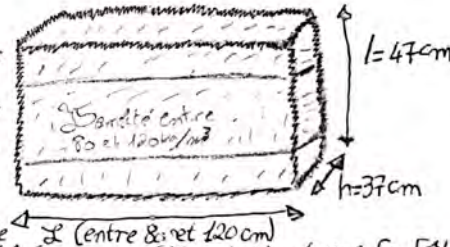 l=47cm
Densité entre
80 et 120kg/m³
h=37cm
L (entre 80 et 120cm)